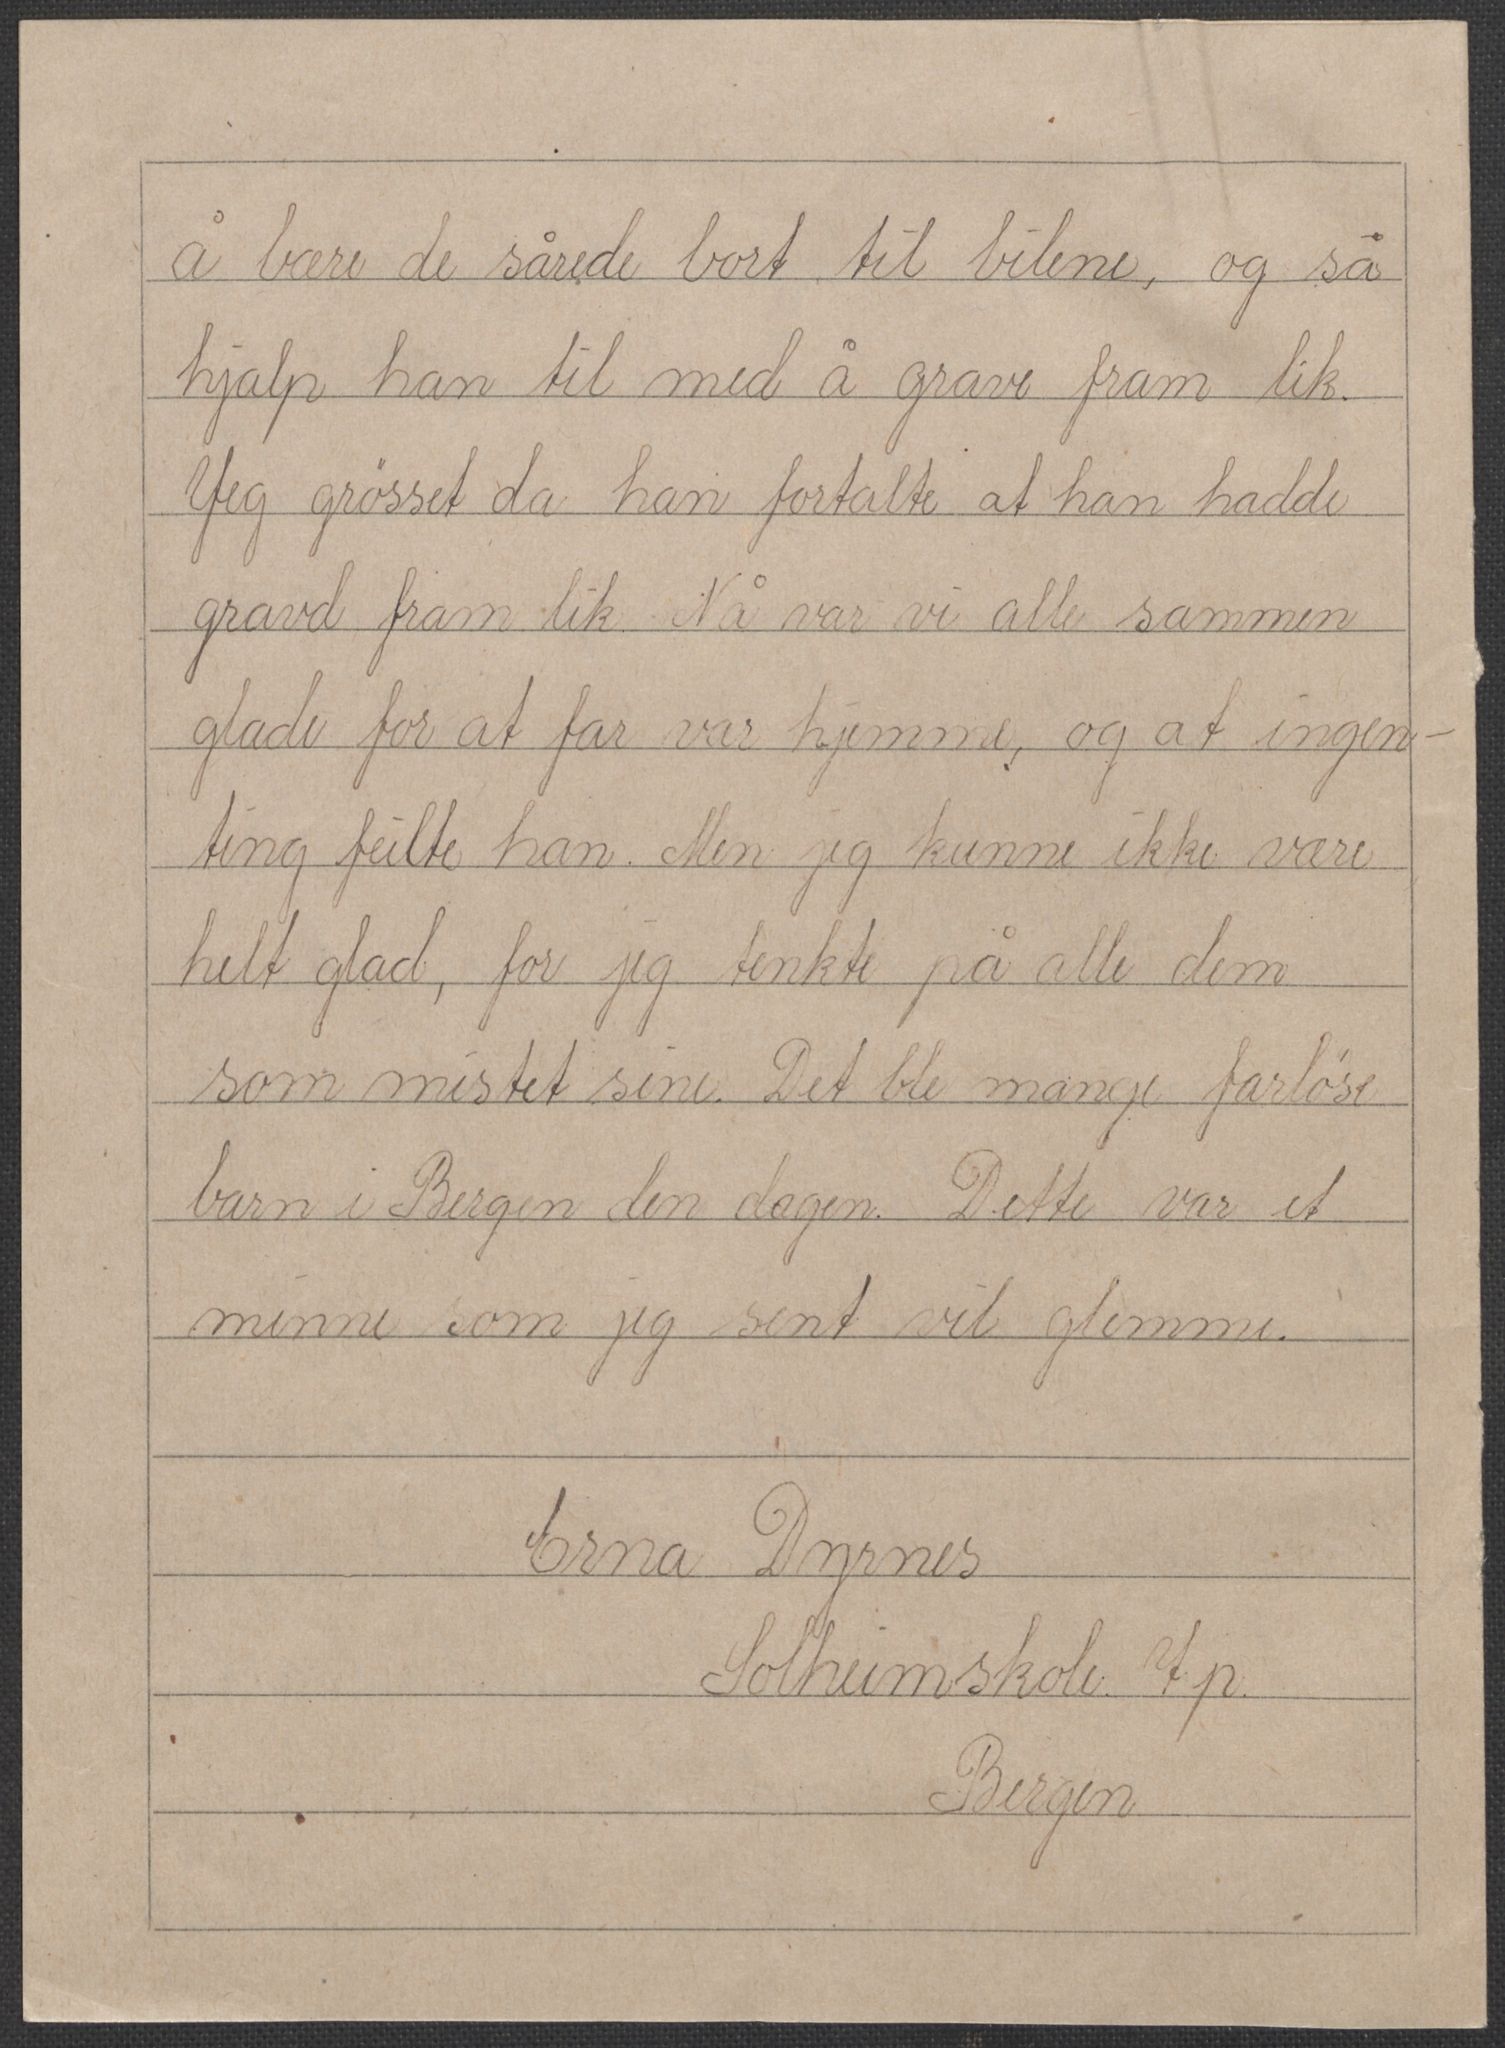 å bære de sårede bort til bilene, og så
hjalp han til med å grave fram lik.
Jeg grösset da han fortalte at han hadde
gravd fram lik. Nå var vi alle sammen
glade for at far var hjemme, og at ingen-
ting feilte han. Men jeg kunne ikke være
helt glad, for jeg tenkte på alle dem
som mistet sine. Det ble mange farlöse
barn i Bergen den dagen. Dette var et
minne som jeg sent vil glemme.
Erna Dyrnes
Solheimskole p.
Bergen